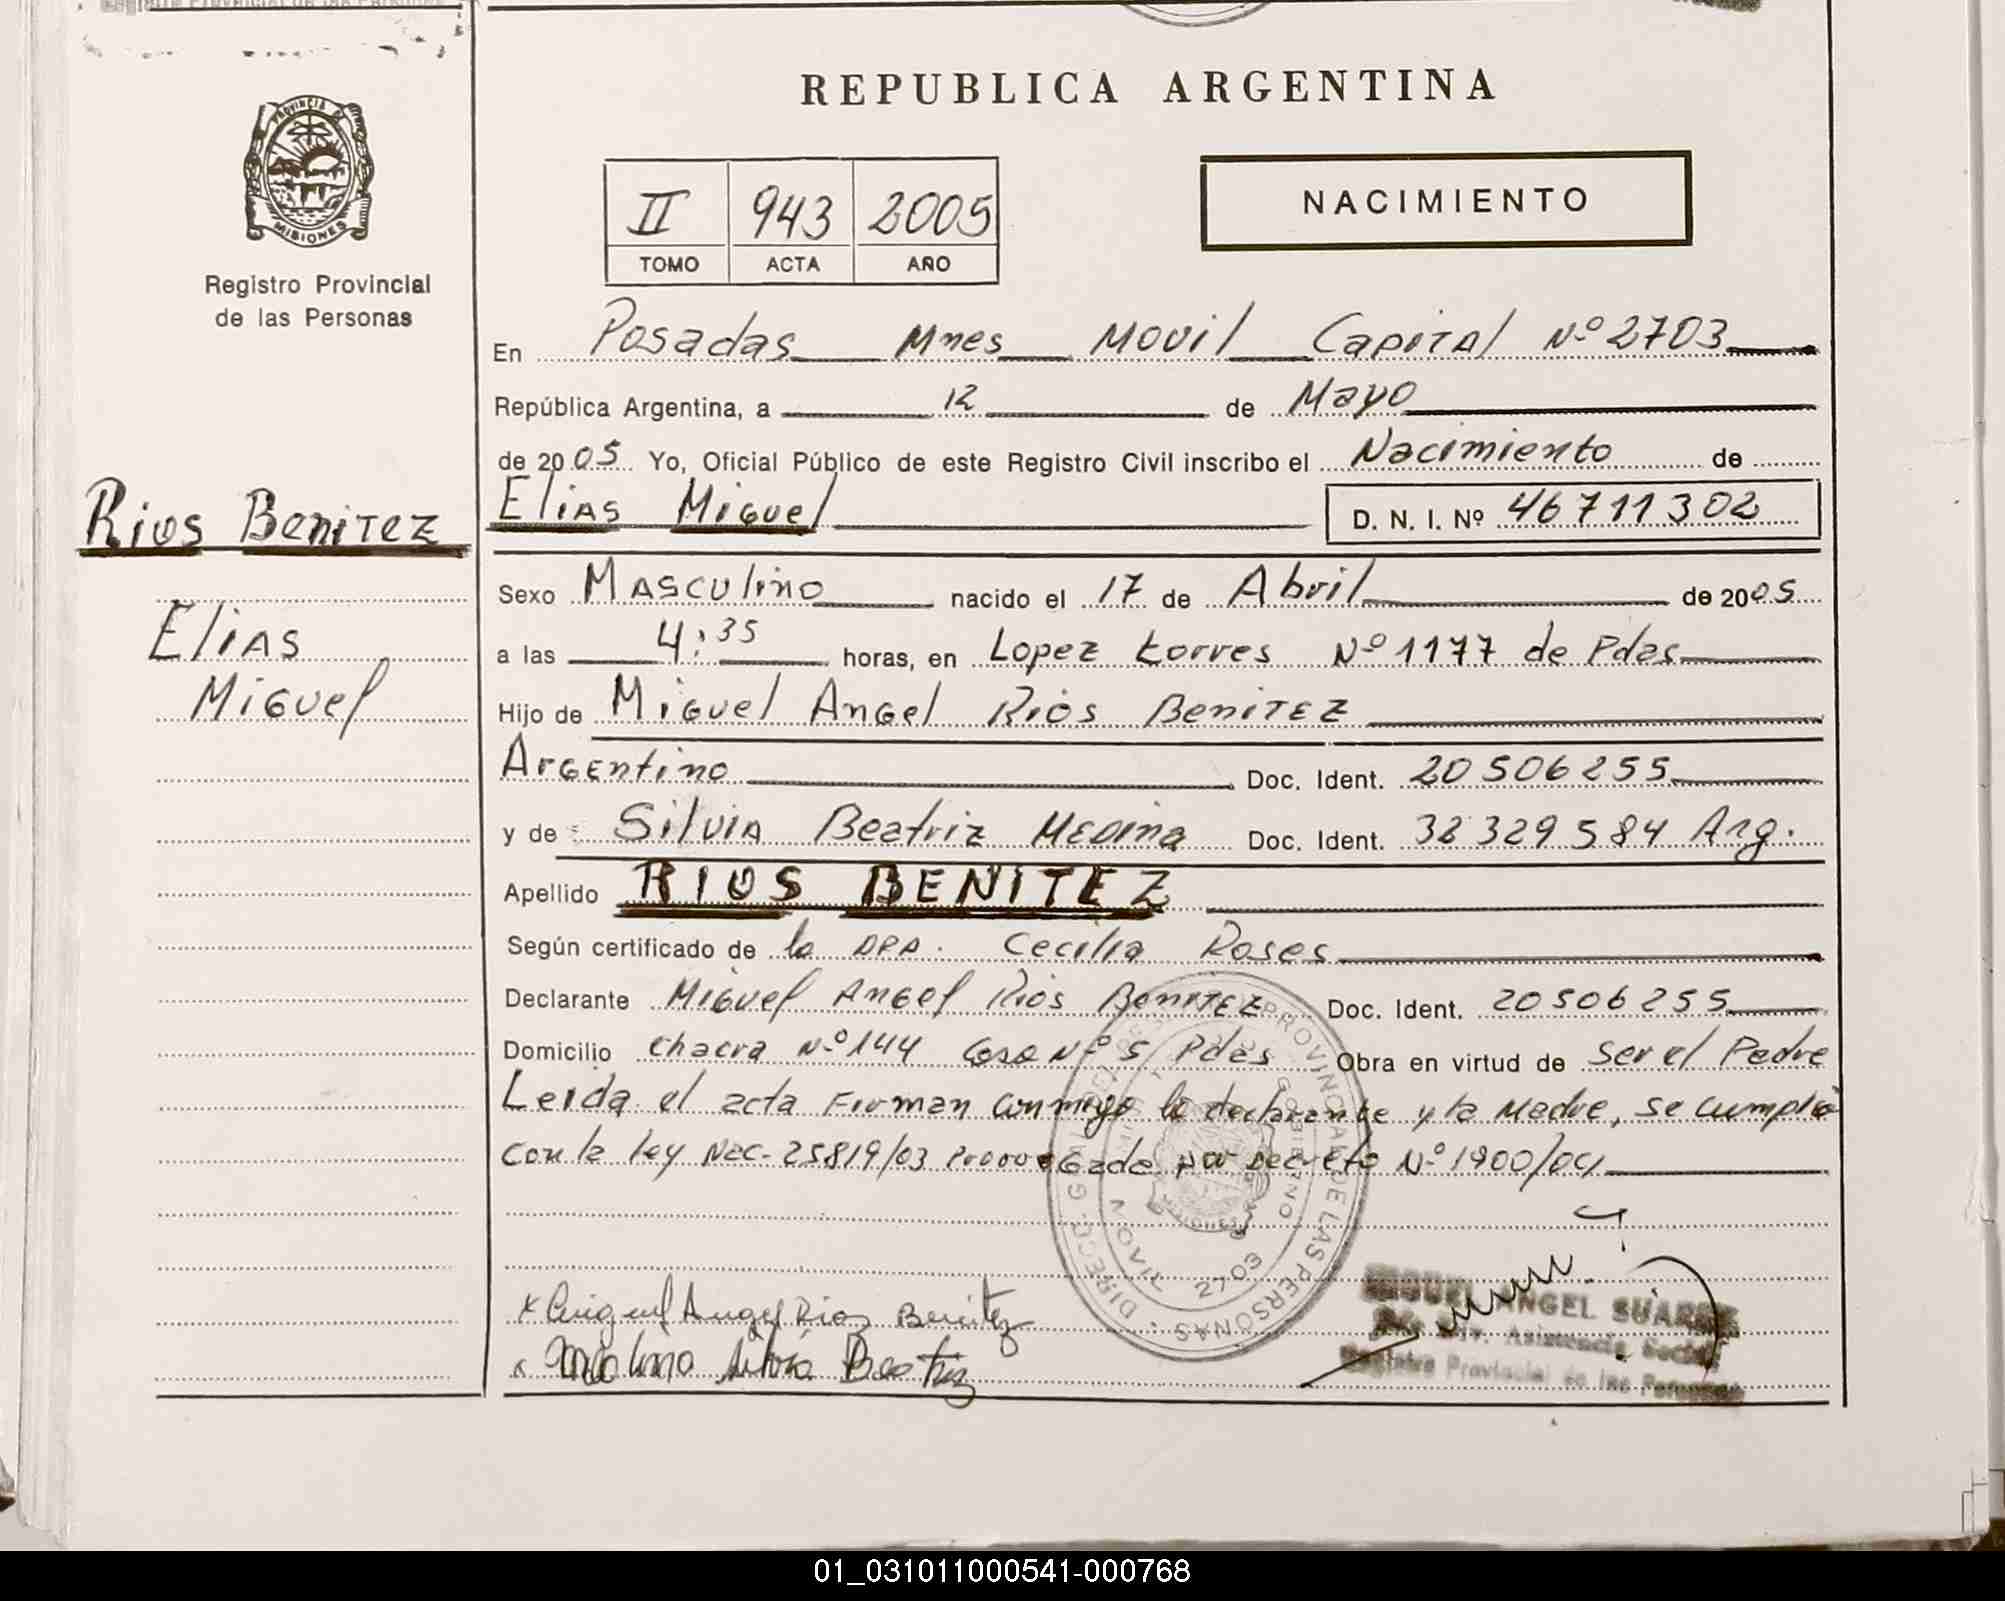 REPUBLICA ARGENTINA
PROVINCIA DE
MISIONES
Registro Provincial
de las Personas
II 943 2005
TOMO ACTA AÑO
NACIMIENTO
En Posadas Mnes Movil Capital Nº 2703
República Argentina, a 12 de Mayo
de 2005 Yo, Oficial Público de este Registro Civil inscribo el Nacimiento de
Rios Benitez
Elias Miguel D. N. I. Nº 46711302
Sexo Masculino nacido el 17 de Abril de 2005
Elias
a las 4:35 horas, en Lopez torres Nº 1177 de Pdas
Miguel
Hijo de Miguel Angel Rios Benitez
Argentino Doc. Ident. 20506255
y de Silvia Beatriz Medina Doc. Ident. 32329584 Arg.
Apellido RIOS BENITEZ
Según certificado de la DRA. Cecilia Roses
Declarante Miguel Angel Rios Benitez Doc. Ident. 20506255
Domicilio Chacra Nº 144 Casa Nº 5 Pdas Obra en virtud de ser el Padre
Leida el acta Firman conmigo la declarante y la Madre, se cumplio
con la ley Nac. 25819/03 por Decreto Nº 1900/04
DIRECC. GRAL. DEL REGISTRO PROVINCIAL DE LAS PERSONAS
MOVIL 2703
GOBIERNO
x Miguel Angel Rios Benitez
x Medina Silvia Beatriz
MIGUEL ANGEL SUAREZ
Div. Asistencia Social
Registro Provincial de las Personas
01_031011000541-000768